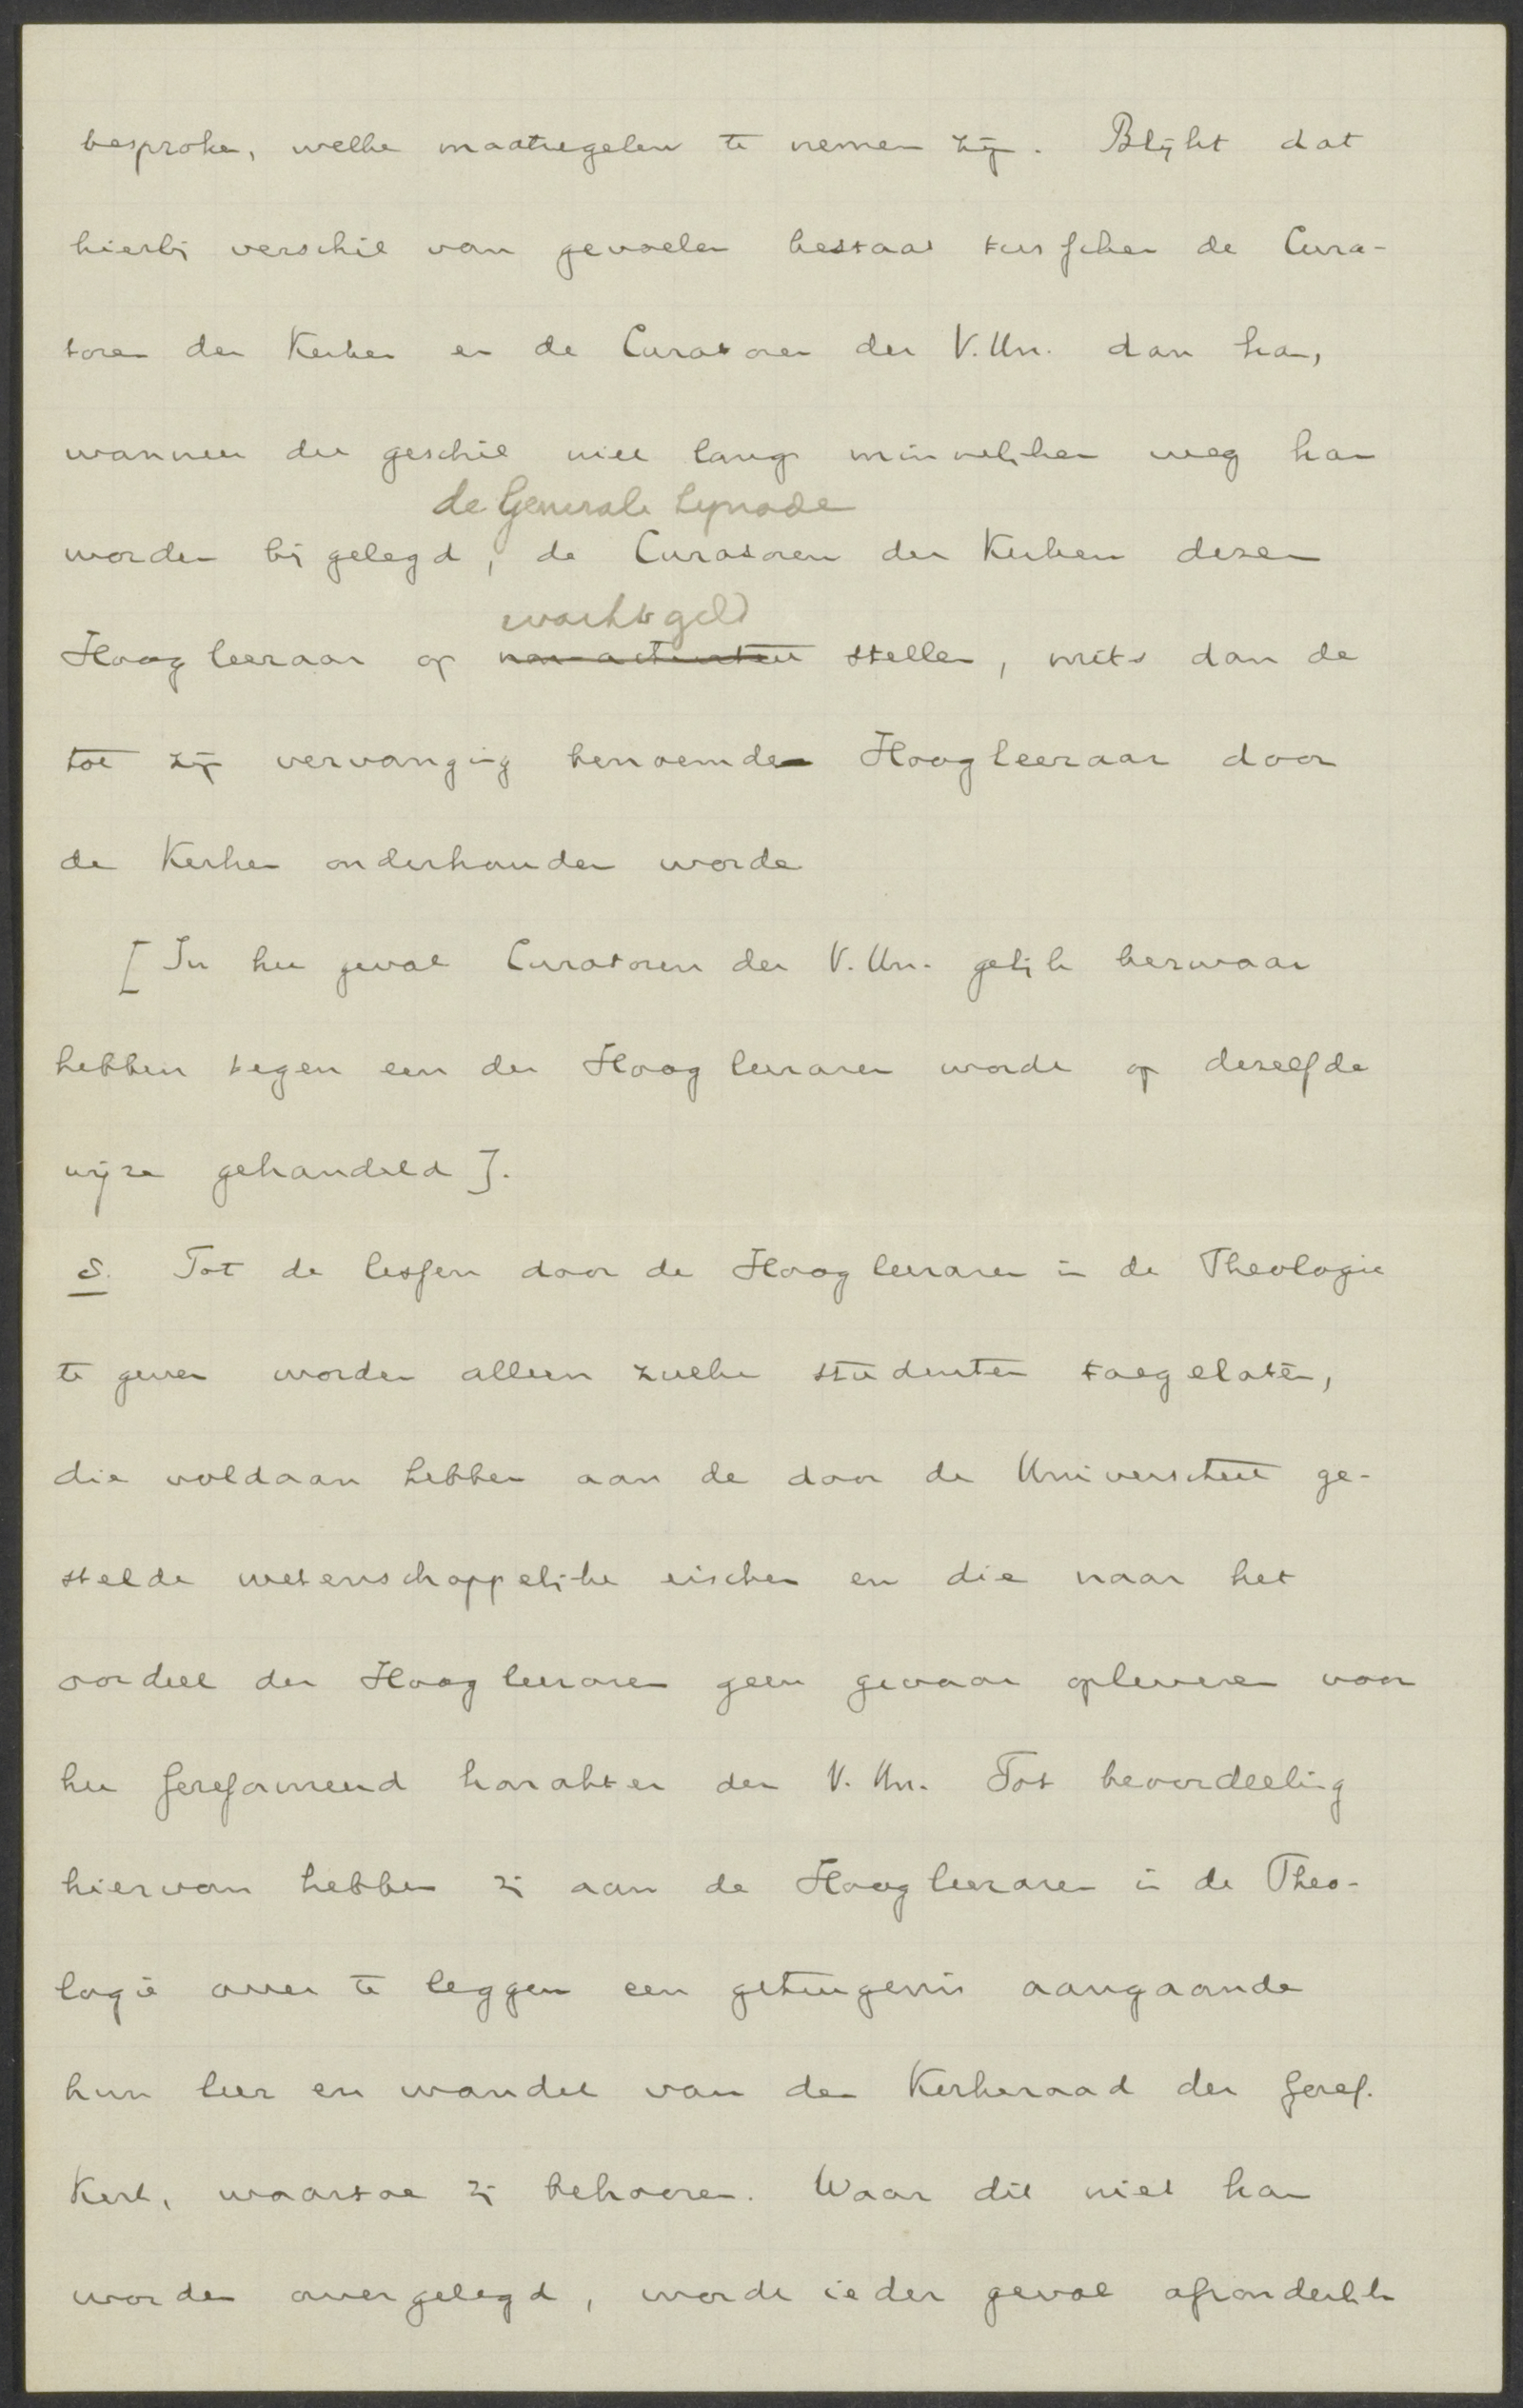 besproken, welke maatregelen te nemen zijn. Blijkt dat
hierbij verschil van gevoelen bestaat tusschen de Cura-
toren der Kerken en de Curatoren der V. Un. dan kan,
wanneer dit geschil niet langs minnelijken weg kan
de Generale Synode
worden bijgelegd, de Curatoren der Kerken dezen
wachtgeld
Hoogleeraar op non-activiteit stellen, mits dan de
tot zijn vervanging benoemde Hoogleeraar door
de Kerken onderhouden worde
[In het geval Curatoren der V. Un. gelijk bezwaar
hebben tegen een der Hoogleeraren worde op dezelfde
wijze gehandeld].
5. Tot de lessen door de Hoogleeraren in de Theologie
te geven worden alleen zulke studenten toegelaten,
die voldaan hebben aan de door de Universiteit ge-
stelde wetenschappelijke eischen en die naar het
oordeel der Hoogleeraren geen gevaar opleveren voor
het Gereformeerd karakter der V. Un. Tot beoordeeling
hiervan hebben zij aan de Hoogleeraren in de Theo-
logie over te leggen een getuigenis aangaande
hun leer en wandel van den Kerkeraad der Geref.
Kerk, waartoe zij behooren. Waar dit niet kan
worden overgelegd, worde ieder geval afzonderlijk